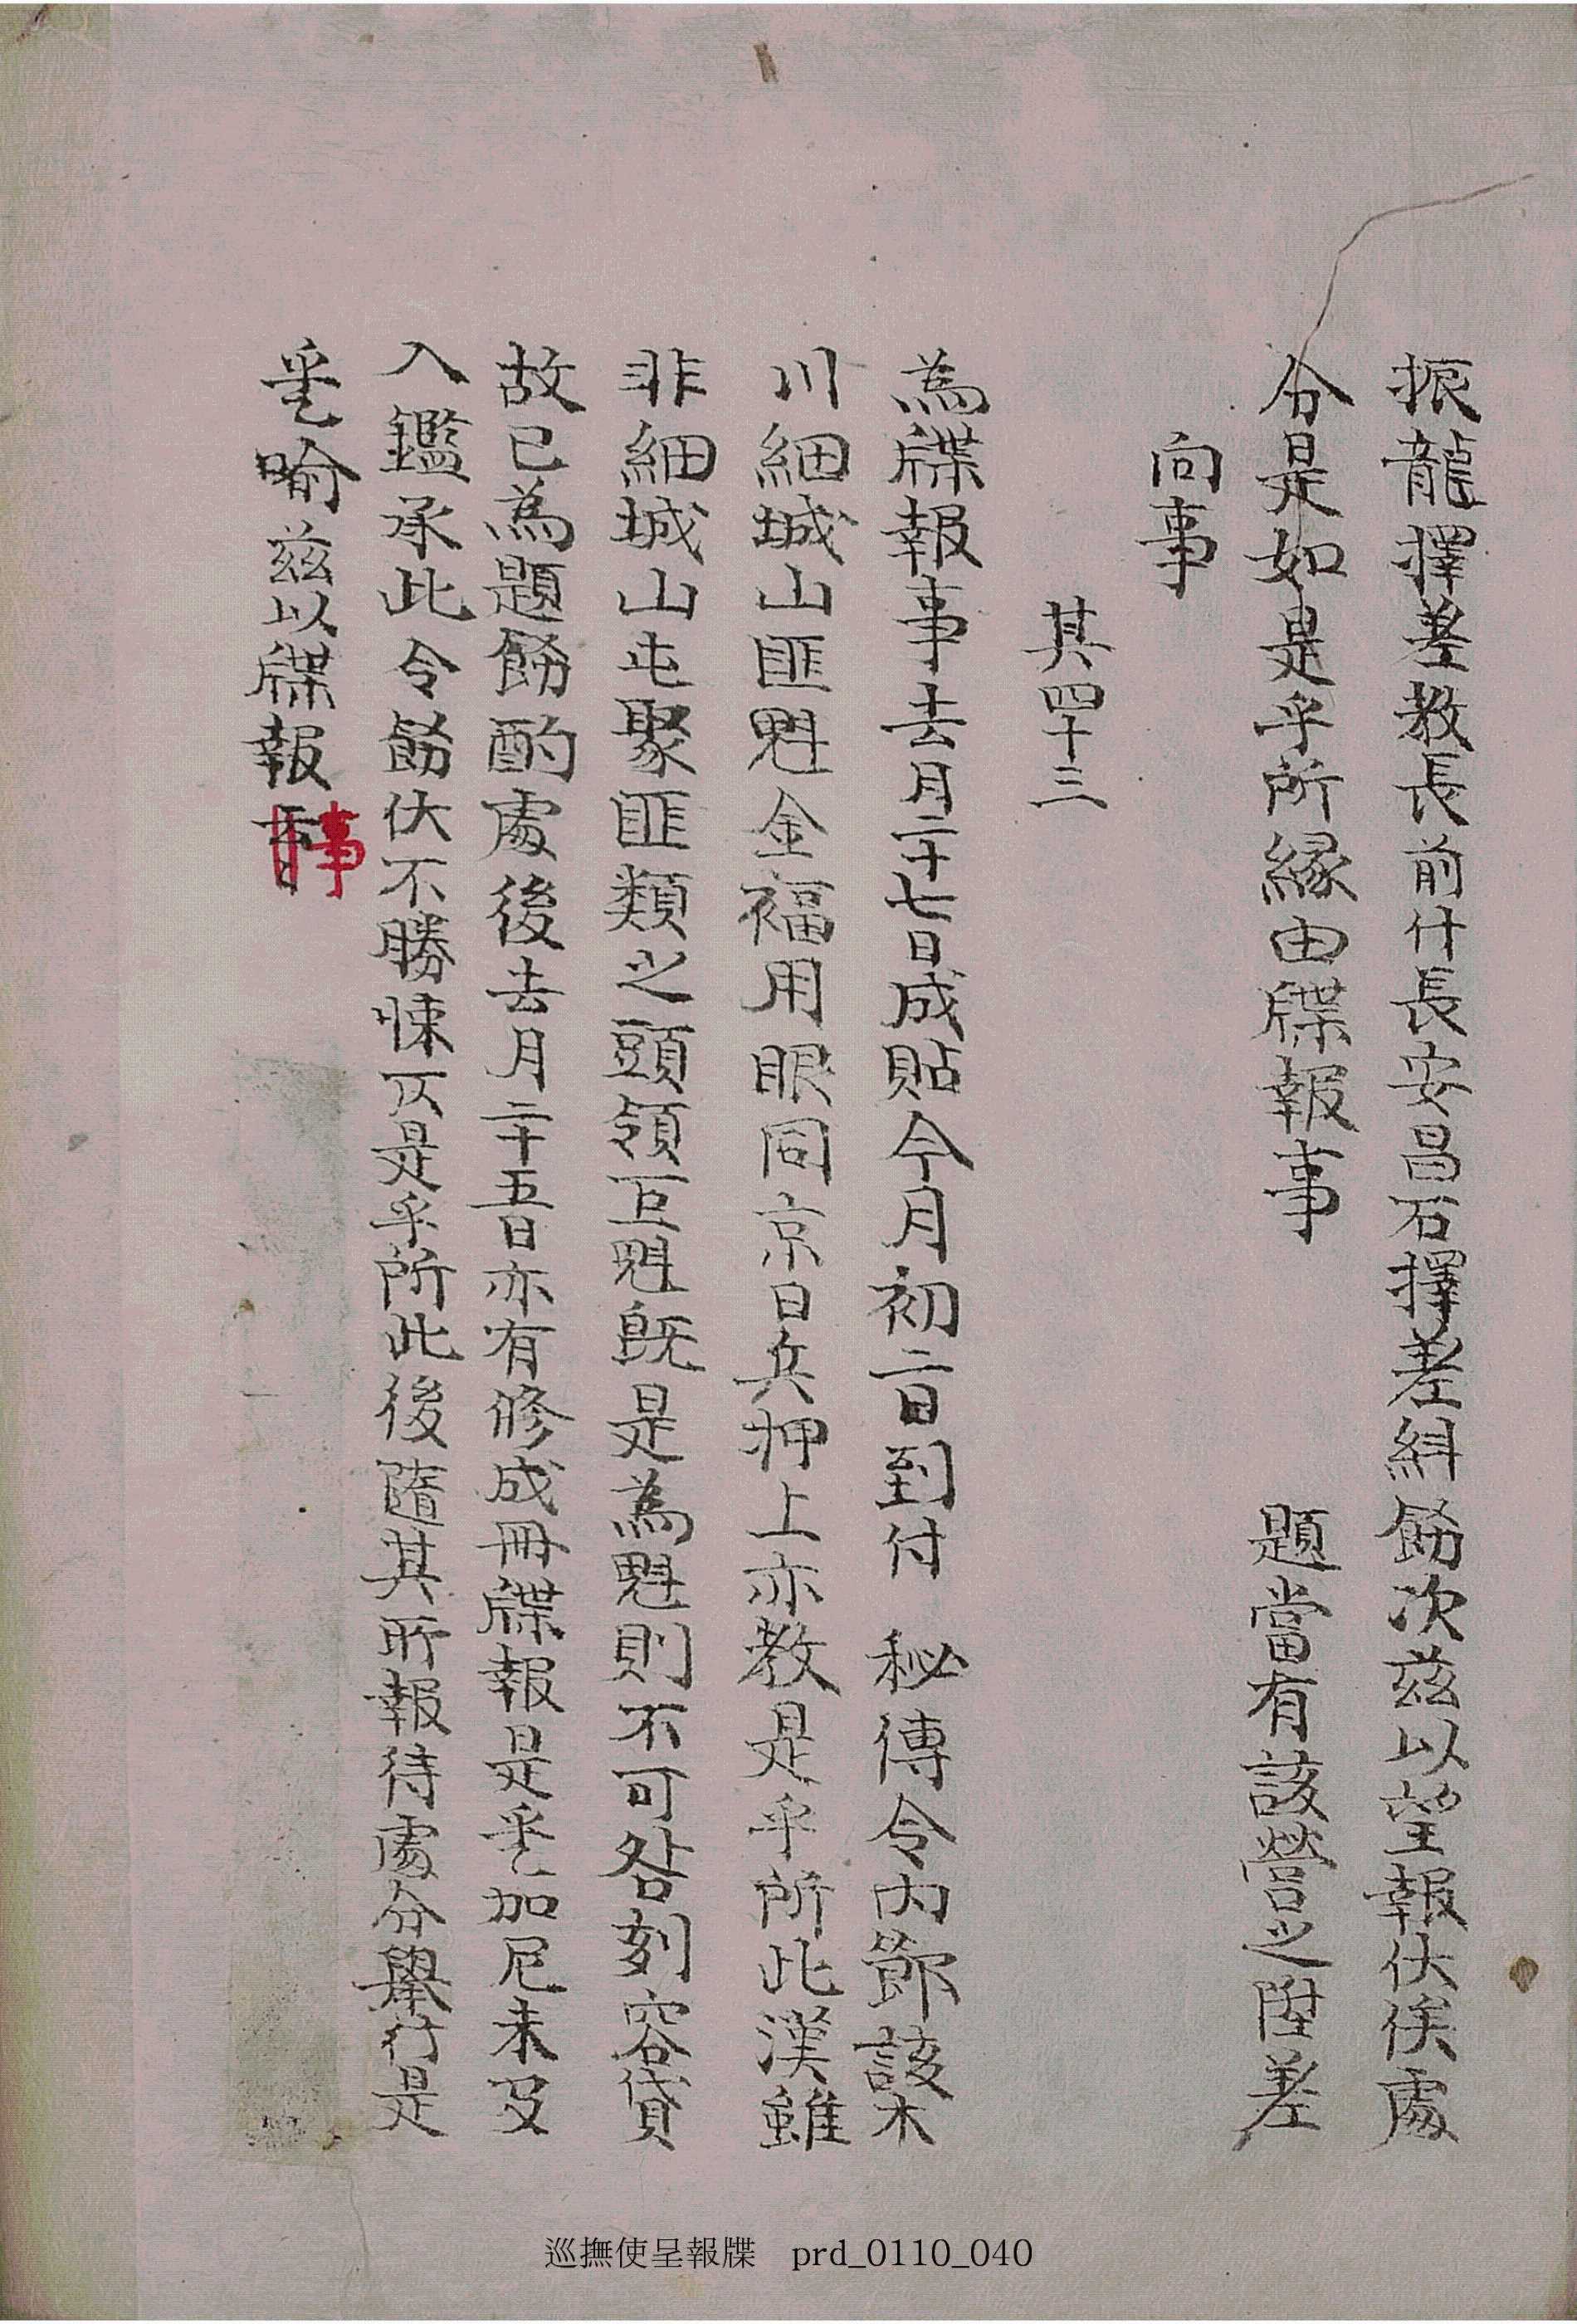 振龍擇差敎長前什長安昌石擇差糾飭次玆以望報伏俟處
分是如是乎所緣由牒報事　　題當有該營之陞差
向事
其四十三
為牒報事去月二十七日成貼今月初二日到付　秘傳令內節該木
川細城山匪魁金福用眼同京日兵押上亦敎是乎所此漢雖
非細城山屯聚匪類之頭領叵魁旣是為魁則不可晷刻容貸
故已為題飭酌處後去月二十五日亦有修成冊牒報是乎乙加尼未及
入鑑承此令飭伏不勝悚仄是乎所此後隨其所報待處分擧行是
乎乙喩玆以牒報事
巡撫使呈報牒　prd_0110_040